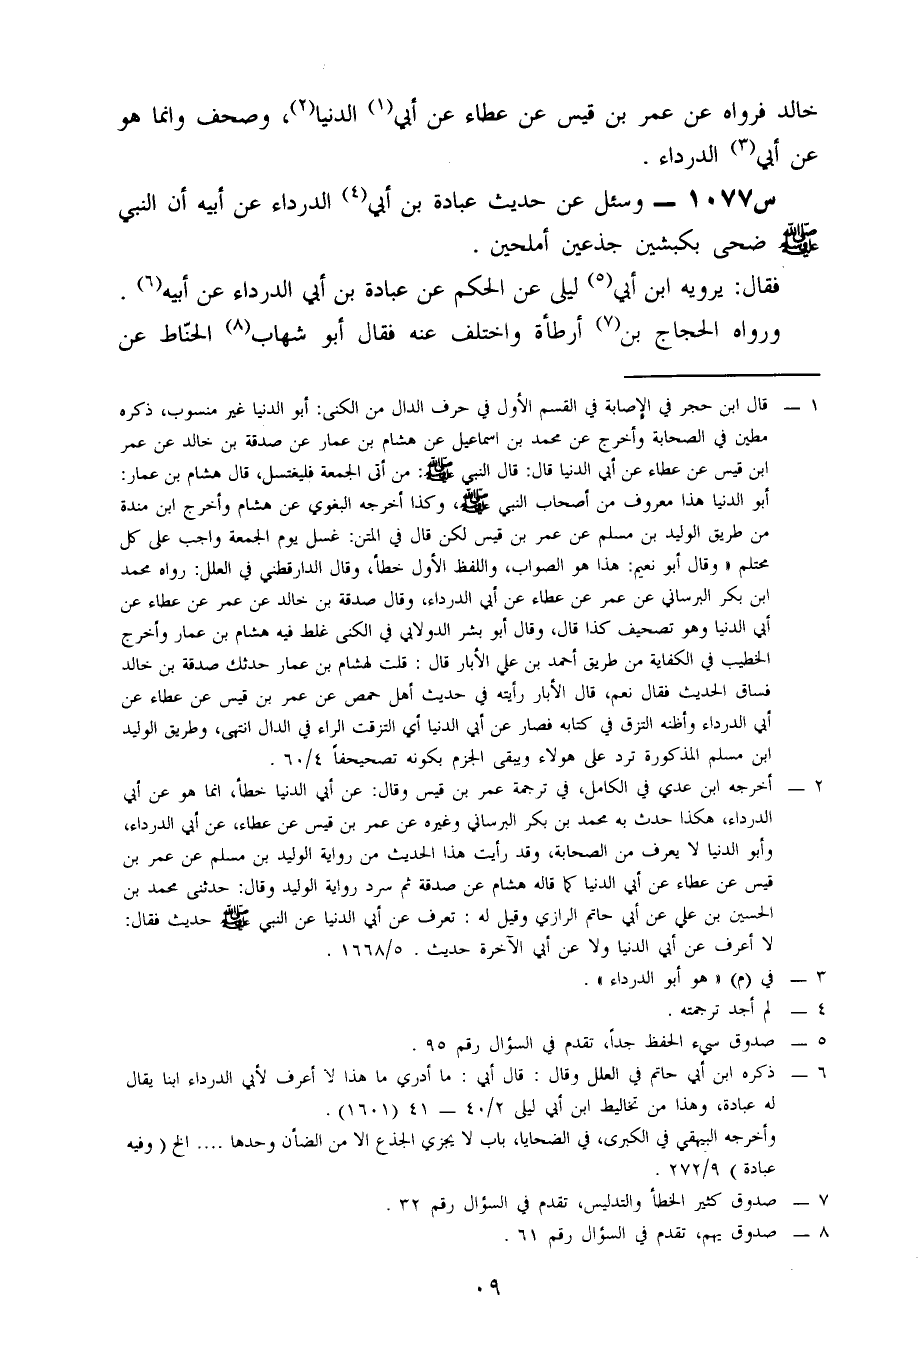 خالد فرواه عن عمر بن قيس عن عطاء عن أبي(١) الدنيا(٢)، وصحف وانما هو
عن أبي(٣) الدرداء .
س١٠٧٧ ــ وسئل عن حديث عبادة بن أبي(٤) الدرداء عن أبيه أن النبي
ﷺ ضحى بكبشين جذعين أملحين .
فقال: يرويه ابن أبي(٥) ليلى عن الحكم عن عبادة بن أبي الدرداء عن أبيه(٦) .
ورواه الحجاج بن(٧) أرطأة واختلف عنه فقال أبو شهاب(٨) الحنّاط عن
١ ــ قال ابن حجر في الإصابة في القسم الأول في حرف الدال من الكنى: أبو الدنيا غير منسوب، ذكره
مطين في الصحابة وأخرج عن محمد بن اسماعيل عن هشام بن عمار عن صدقة بن خالد عن عمر
ابن قيس عن عطاء عن أبي الدنيا قال: قال النبي ﷺ: من أتى الجمعة فليغتسل، قال هشام بن عمار:
أبو الدنيا هذا معروف من أصحاب النبي ﷺ، وكذا أخرجه البغوي عن هشام وأخرج ابن مندة
من طريق الوليد بن مسلم عن عمر بن قيس لكن قال في المتن: غسل يوم الجمعة واجب على كل
محتلم » وقال أبو نعيم: هذا هو الصواب، واللفظ الأول خطأ، وقال الدارقطني في العلل: رواه محمد
ابن بكر البرساني عن عمر عن عطاء عن أبي الدرداء، وقال صدقة بن خالد عن عمر عن عطاء عن
أبي الدنيا وهو تصحيف كذا قال، وقال أبو بشر الدولابي في الكنى غلط فيه هشام بن عمار وأخرج
الخطيب في الكفاية من طريق أحمد بن علي الأبار قال : قلت لهشام بن عمار حدثك صدقة بن خالد
فساق الحديث فقال نعم، قال الأبار رأيته في حديث أهل حمص عن عمر بن قيس عن عطاء عن
أبي الدرداء وأظنه التزق في كتابه فصار عن أبي الدنيا أي التزقت الراء في الدال انتهى، وطريق الوليد
ابن مسلم المذكورة ترد على هولاء ويبقى الجزم بكونه تصحيحفاً ٦٠/٤ .
٢ ــ أخرجه ابن عدي في الكامل، في ترجمة عمر بن قيس وقال: عن أبي الدنيا خطأ، انما هو عن أبي
الدرداء، هكذا حدث به محمد بن بكر البرساني وغيره عن عمر بن قيس عن عطاء، عن أبي الدرداء،
وأبو الدنيا لا يعرف من الصحابة، وقد رأيت هذا الحديث من رواية الوليد بن مسلم عن عمر بن
قيس عن عطاء عن أبي الدنيا كما قاله هشام عن صدقة ثم سرد رواية الوليد وقال: حدثنى محمد بن
الحسين بن علي عن أبي حاتم الرازي وقيل له : تعرف عن أبي الدنيا عن النبي ﷺ حديث فقال:
لا أعرف عن أبي الدنيا ولا عن أبي الآخرة حديث . ١٦٦٨/٥ .
٣ ــ في (م) « هو أبو الدرداء » .
٤ ــ لم أجد ترجمته .
٥ ــ صدوق سيء الحفظ جداً، تقدم في السؤال رقم ٩٥ .
٦ ــ ذكره ابن أبي حاتم في العلل وقال : قال أبي : ما أدري ما هذا لا أعرف لأبي الدرداء ابنا يقال
له عبادة، وهذا من تخاليط ابن أبي ليلى ٤٠/٢ ــ ٤١ (١٦٠١) .
وأخرجه البيهقي في الكبرى، في الضحايا، باب لا يجزي الجذع الا من الضأن وحدها .... الخ ( وفيه
عبادة ) ٢٧٢/٩ .
٧ ــ صدوق كثير الخطأ والتدليس، تقدم في السؤال رقم ٣٢ .
٨ ــ صدوق يهم، تقدم في السؤال رقم ٦١ .
٠٩